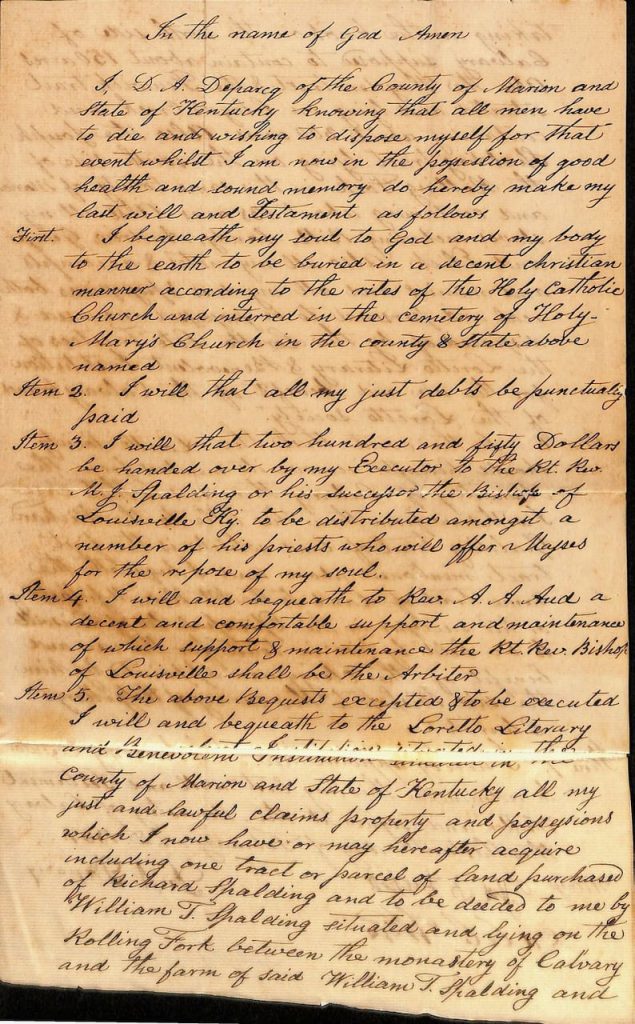 In the name of God Amen
I, D. A. Deparcq of the County of Marion and
State of Kentucky knowing that all men have
to die and wishing to dispose myself for that
event whilst I am now in the posession of good
health and sound memory do hereby make my
last will and Testament as follows
First. I bequeath my soul to God and my body
to the earth to be buried in a decent christian
manner according to the rites of the Holy Catholic
Church and interred in the cemetery of Holy-
Mary's Church in the county & State above
named
Item 2. I will that all my just debts be punctually
paid
Item 3. I will that two hundred and fifty Dollars
be handed over by my Executor to the Rt. Rev.
M. J. Spalding or his successor the Bishop of
Louisville Ky. to be distributed amongst a
number of his priests who will offer Masses
for the repose of my soul.
Item 4. I will and bequeath to Rev. A. A. Aud a
decent and comfortable support and maintenance
of which support & maintenance the Rt. Rev. Bishop
of Louisville shall be the Arbiter
Item 5. The above Bequests excepted & to be executed
I will and bequeath to the Loretto Literary
and Benevolent Institution situated in the
County of Marion and State of Kentucky all my
just and lawful claims property and possessions
which I now have or may hereafter acquire
including one tract or parcel of land purchased
of Richard Spalding and to be deeded to me by
William T. Spalding situated and lying on the
Rolling Fork between the monastery of Calvary
and the farm of said William T. Spalding and